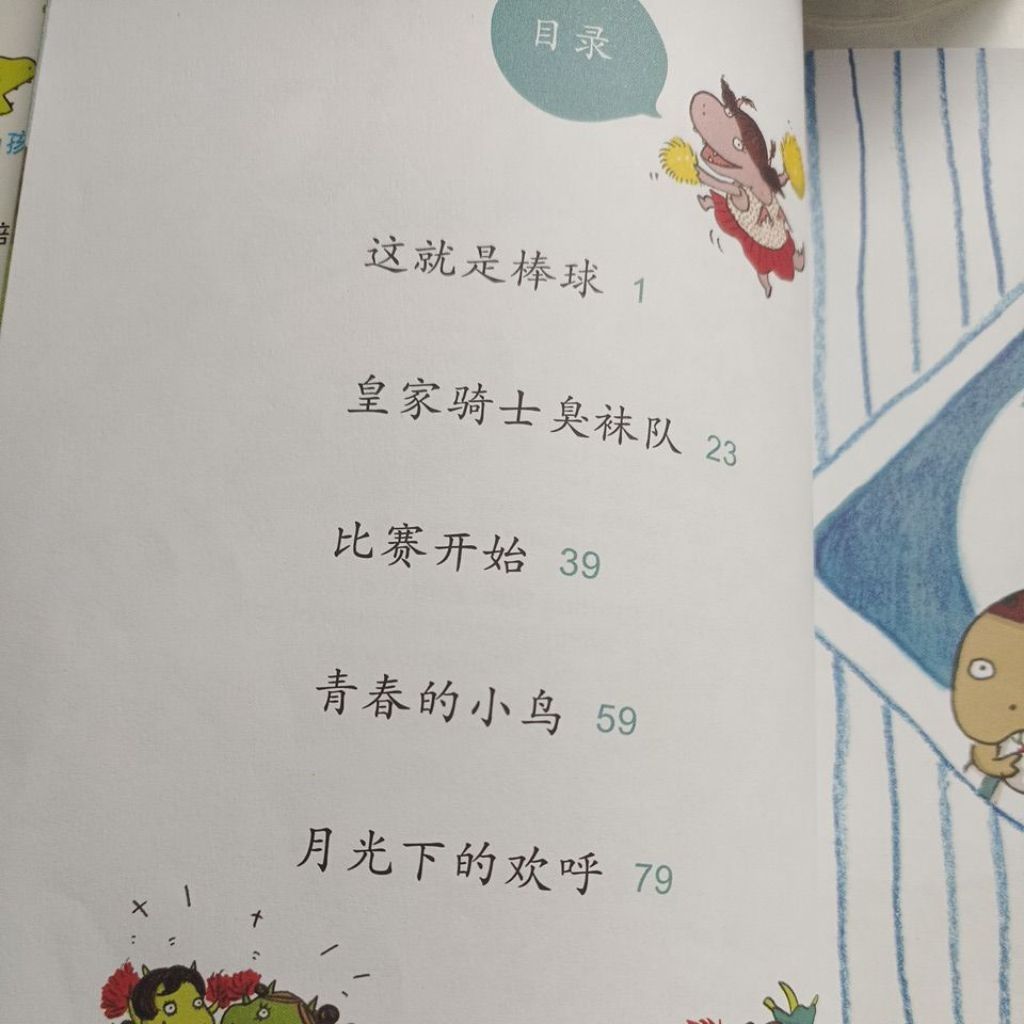 目录
这就是棒球 1
皇家骑士臭袜队 23
比赛开始 39
青春的小鸟 59
月光下的欢呼 79
孩